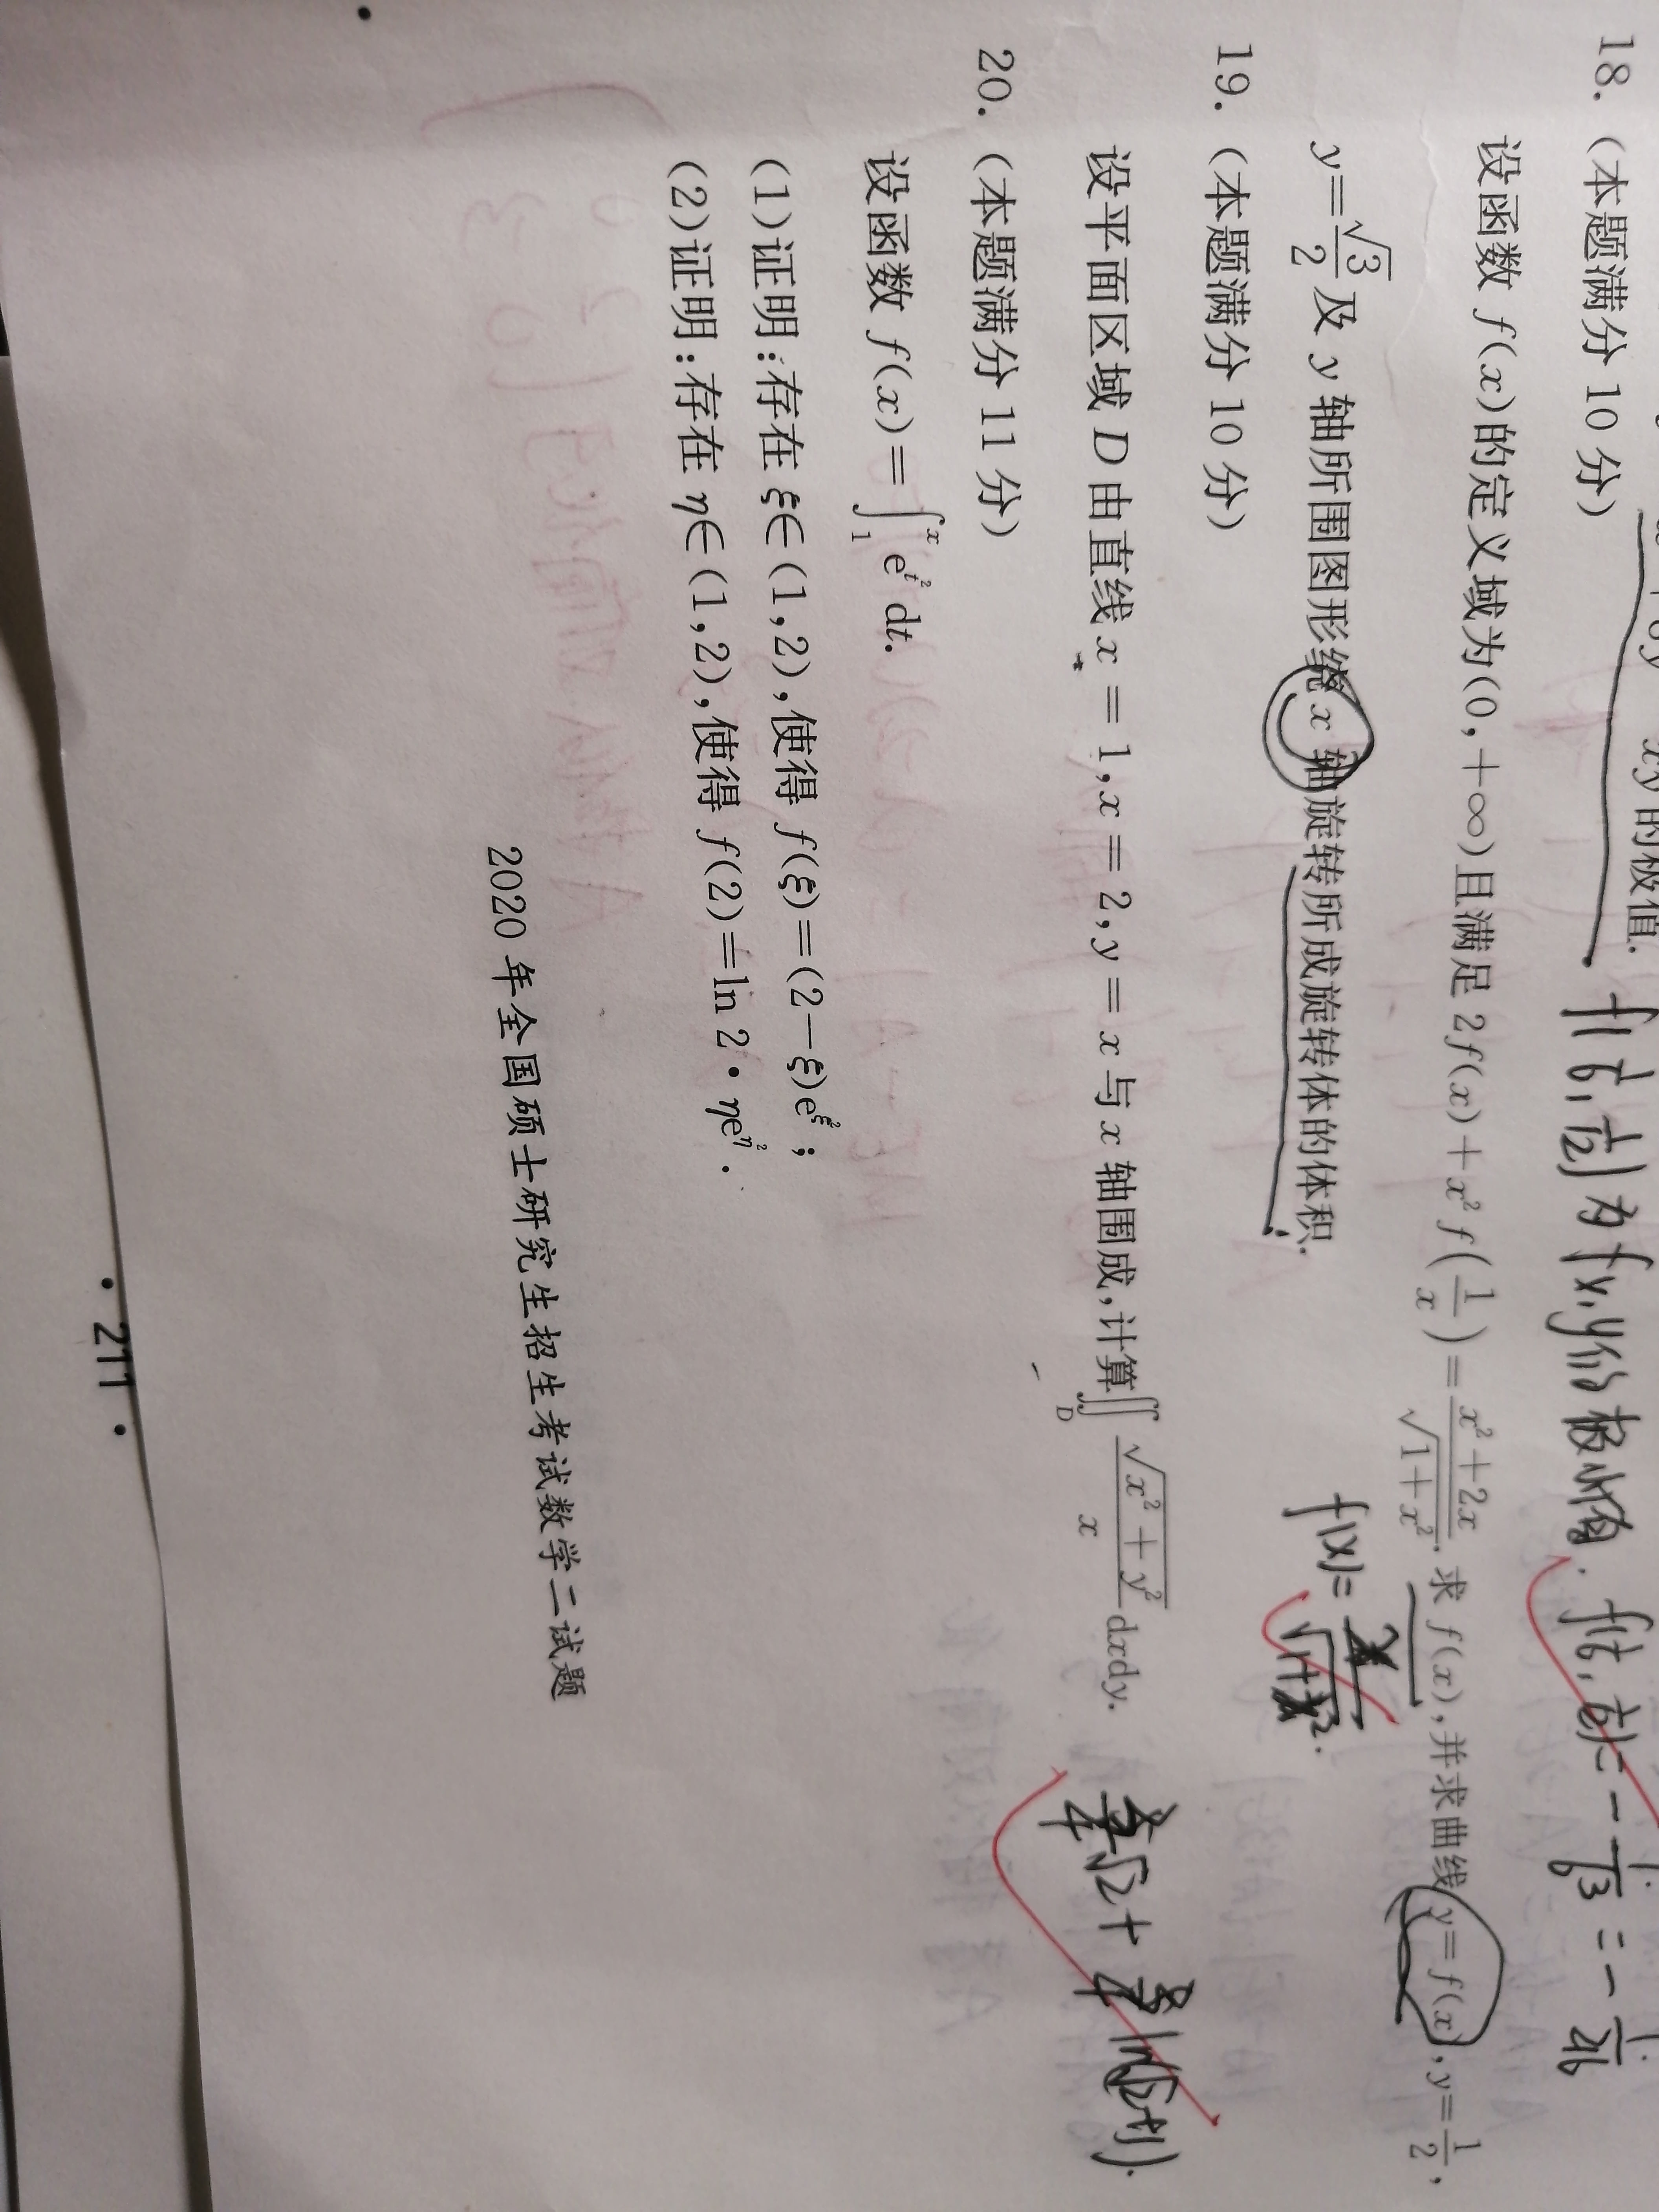 xy的极值.
18.(本题满分10分) f(1/6,1/12)为f(x,y)的极小值. f(1/6,1/12)=-1/6³=-1/216
设函数 f(x)的定义域为(0,+∞)且满足 2f(x)+x²f(1/x)=(x²+2x)/√(1+x²). 求 f(x),并求曲线 y=f(x),y=1/2,
y=√3/2 及 y 轴所围图形绕 x 轴旋转所成旋转体的体积.
f(x)=x/√(1+x²).
19.(本题满分10分)
设平面区域 D 由直线 x=1,x=2,y=x 与 x 轴围成,计算∬_D √(x²+y²)/x dxdy. 3/4√2+3/4 ln(√2+1).
20.(本题满分11分)
设函数 f(x)=∫₁ˣ e^(t²) dt.
(1)证明:存在 ξ∈(1,2),使得 f(ξ)=(2-ξ)e^(ξ²);
(2)证明:存在 η∈(1,2),使得 f(2)=ln 2·ηe^(η²).
2020年全国硕士研究生招生考试数学二试题
·211·